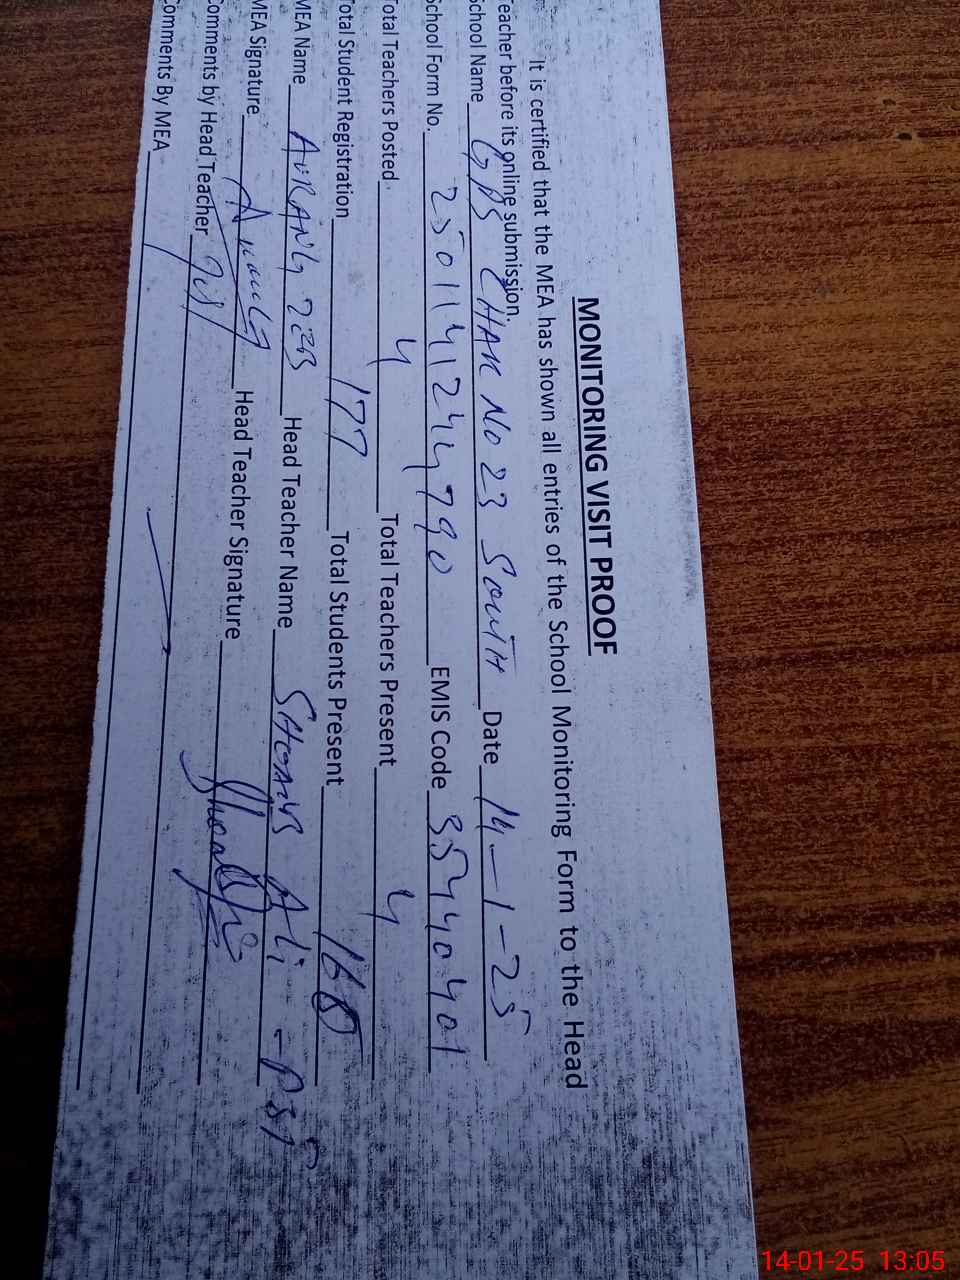 MONITORING VISIT PROOF
It is certified that the MEA has shown all entries of the School Monitoring Form to the Head
eacher before its online submission.
School Name GPS CHAK NO 23 SOUTH Date 14-1-25
School Form No. EMIS Code 35440401
Total Teachers Posted 4 Total Teachers Present 4
Total Student Registration 177 Total Students Present 168
MEA Name AURANG ZEB Head Teacher Name SHOAIB Ali - PST
MEA Signature Head Teacher Signature
Comments by Head Teacher
Comments By MEA
14-01-25 13:05